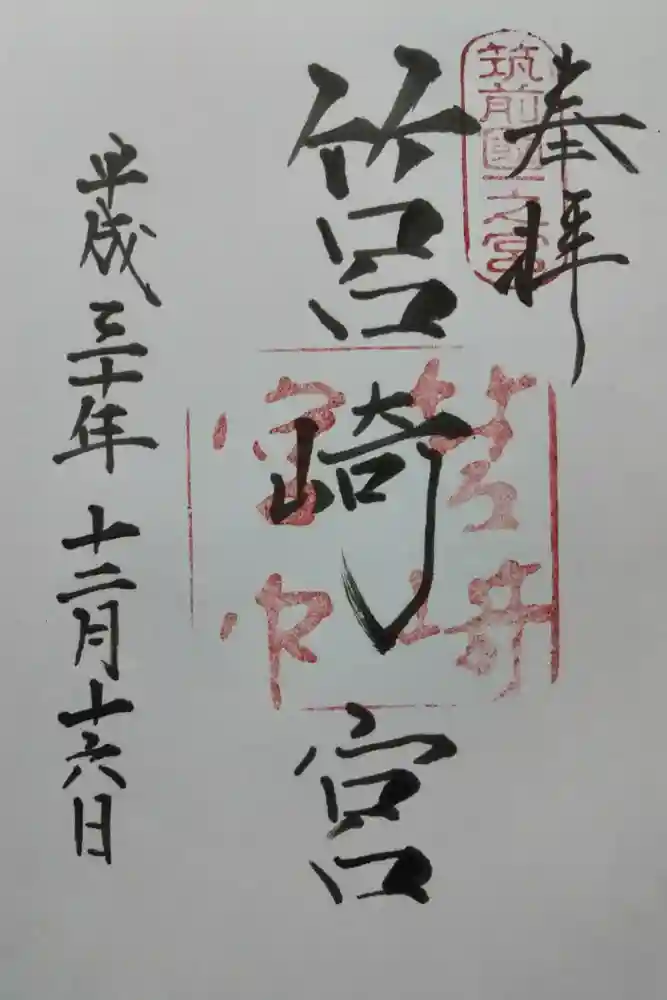 奉拝
筑前國一之宮
筥崎宮
平成三十年十二月十六日